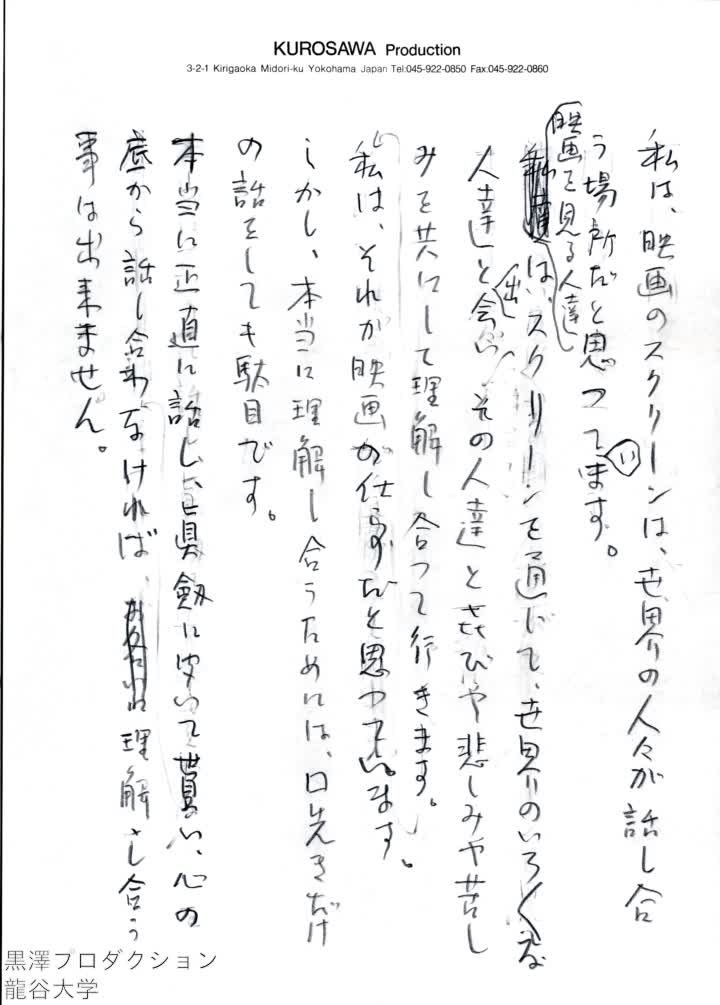 KUROSAWA Production
3-2-1 Kirigaoka Midori-ku Yokohama Japan Tel:045-922-0850 Fax:045-922-0860
私は、映画のスクリーンは、世界の人々が話し合
う場所だと思っています。
映画を見る人達
は、スクリーンを通じて、世界のいろ〱な
人達と出会い、その人達と喜びや悲しみや苦し
みを共にして理解し合って行きます。
私は、それが映画の仕事だと思っています。
しかし、本当に理解し合うためには、口先きだけ
の話をしても駄目です。
本当に正直に話し、真劔に聞いて貰い、心の
底から話し合わなければ、理解し合う
事は出来ません。
黒澤プロダクション
龍谷大学